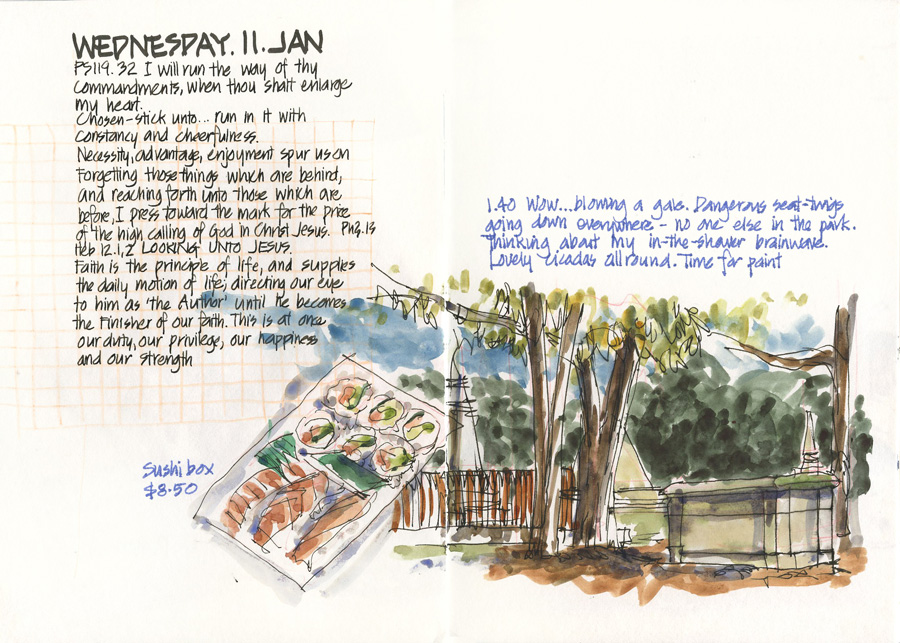 WEDNESDAY. 11. JAN
PS119. 32 I will run the way of thy
commandments, when thou shalt enlarge
my heart.
Chosen-stick unto... run in it with
constancy and cheerfulness.
Necessity, advantage, enjoyment spur us on
Forgetting those things which are behind,
and reaching forth unto those which are
before, I press toward the mark for the prize
of the high calling of God in Christ Jesus. Ph3.13
Heb 12.1,2 LOOKING UNTO JESUS.
Faith is the principle of life, and supplies
the daily motion of life; directing our eye
to him as 'the Author' until he becomes
the Finisher of our faith. This is at once
our duty, our privilege, our happiness
and our strength
Sushi box
$8.50
1.40 Wow... blowing a gale. Dangerous seat-twigs
going down everywhere - no one else in the park.
Thinking about my in-the-shower brainwave.
Lovely cicadas all round. Time for paint